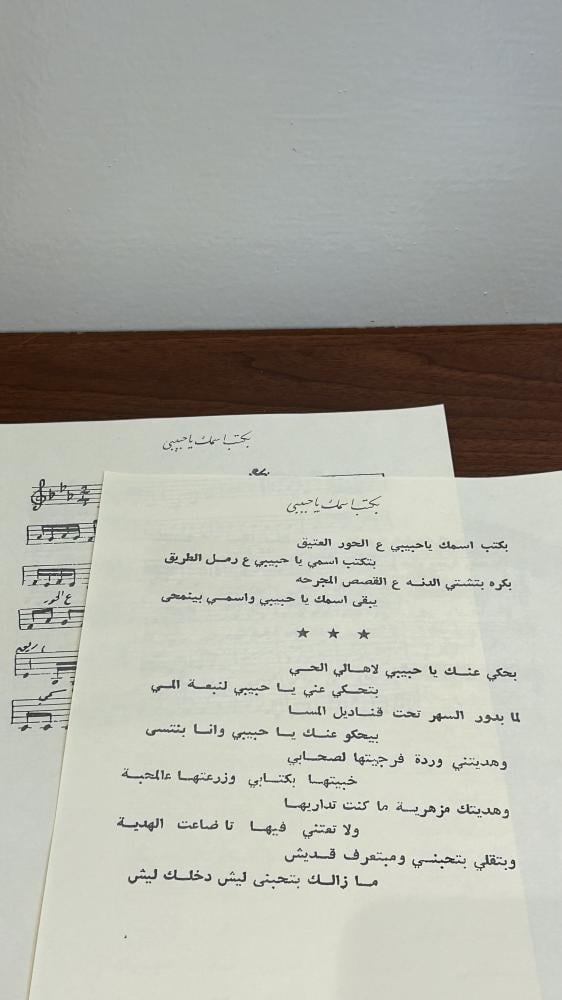 بكتب اسمك ياحبيبي
بكتب اسمك ياحبيبي
بكتب اسمك ياحبيبي ع الحور العتيق
بتكتب اسمي يا حبيبي ع رمل الطريق
بكره بتشتي الدنه ع القصص المجرحه
يبقى اسمك يا حبيبي واسمي بينمحى
★ ★ ★
بحكي عنك يا حبيبي لاهالي الحي
بتحكي عني يا حبيبي لنبعة المي
لما بدور السهر تحت قناديل المسا
بيحكو عنك يا حبيبي وانا بنتسى
وهديتني وردة فرجيتها لصحابي
خبيتها بكتابي وزرعتها عالمخبة
وهديتك مزهرية ما كنت تداريها
ولا تعتني فيها تا ضاعت الهدية
وبتقلي بتحبني ومبتعرف قديش
ما زالك بتحبنى ليش دخلك ليش
ع الحور